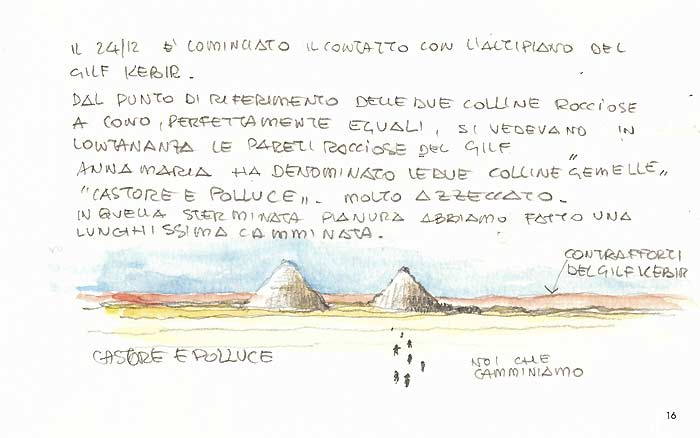 IL 24/12 E' COMINCIATO IL CONTATTO CON L'ALTIPIANO DEL
GILF KEBIR.
DAL PUNTO DI RIFERIMENTO DELLE DUE COLLINE ROCCIOSE
A CONO, PERFETTAMENTE EGUALI, SI VEDEVANO IN
LONTANANZA LE PARETI ROCCIOSE DEL GILF
ANNAMARIA HA DENOMINATO LE DUE COLLINE "GEMELLE"
"CASTORE E POLLUCE". MOLTO AZZECCATO.
IN QUELLA STERMINATA PIANURA ABBIAMO FATTO UNA
LUNGHISSIMA CAMMINATA.
CONTRAFFORTI
DEL GILF KEBIR
CASTORE E POLLUCE
NOI CHE
CAMMINIAMO
16